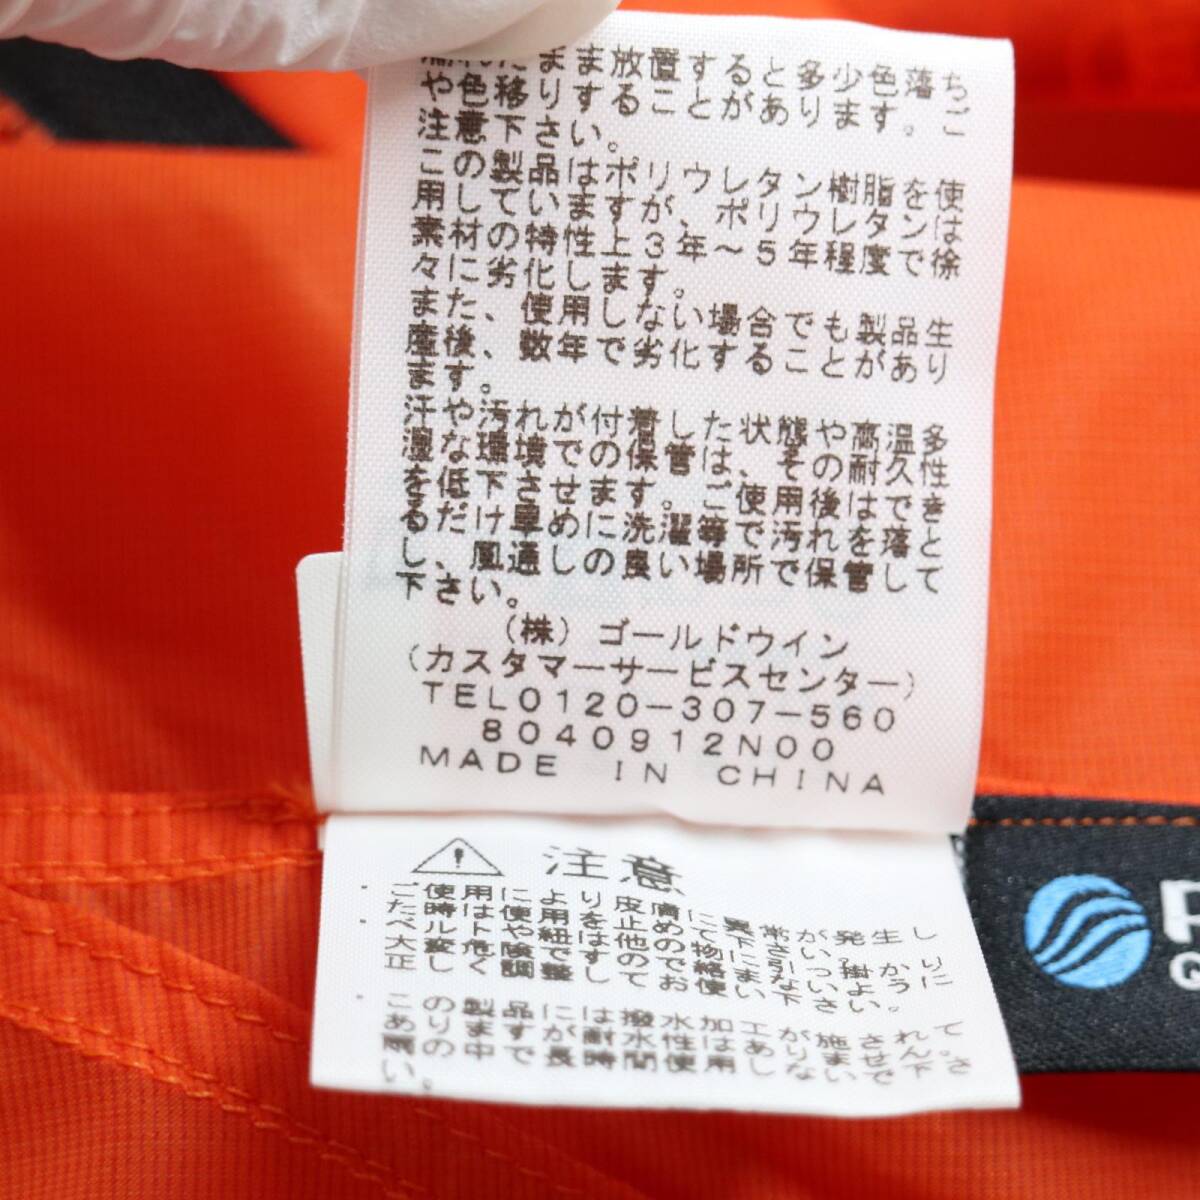 濡れたまま放置すると多少色落ち
や色移りすることがあります。ご
注意下さい。
この製品はポリウレタン樹脂を使
用していますが、ポリウレタンは
素材の特性上3年～5年程度で徐
々に劣化します。
また、使用しない場合でも製品生
産後、数年で劣化することがあり
ます。
汗や汚れが付着した状態や高温多
湿な環境での保管は、その耐久性
を低下させます。ご使用後はでき
るだけ早めに洗濯等で汚れを落と
し、風通しの良い場所で保管して
下さい。
（株）ゴールドウイン
（カスタマーサービスセンター）
TEL0120-307-560
8040912N00
MADE IN CHINA
注意
ご使用により皮膚に異常が発生し
た時は使用を止めて下さい。
この製品には撥水加工が施されて
ありますが耐水性はありません。
雨の中で長時間使用しないで下さ
い。